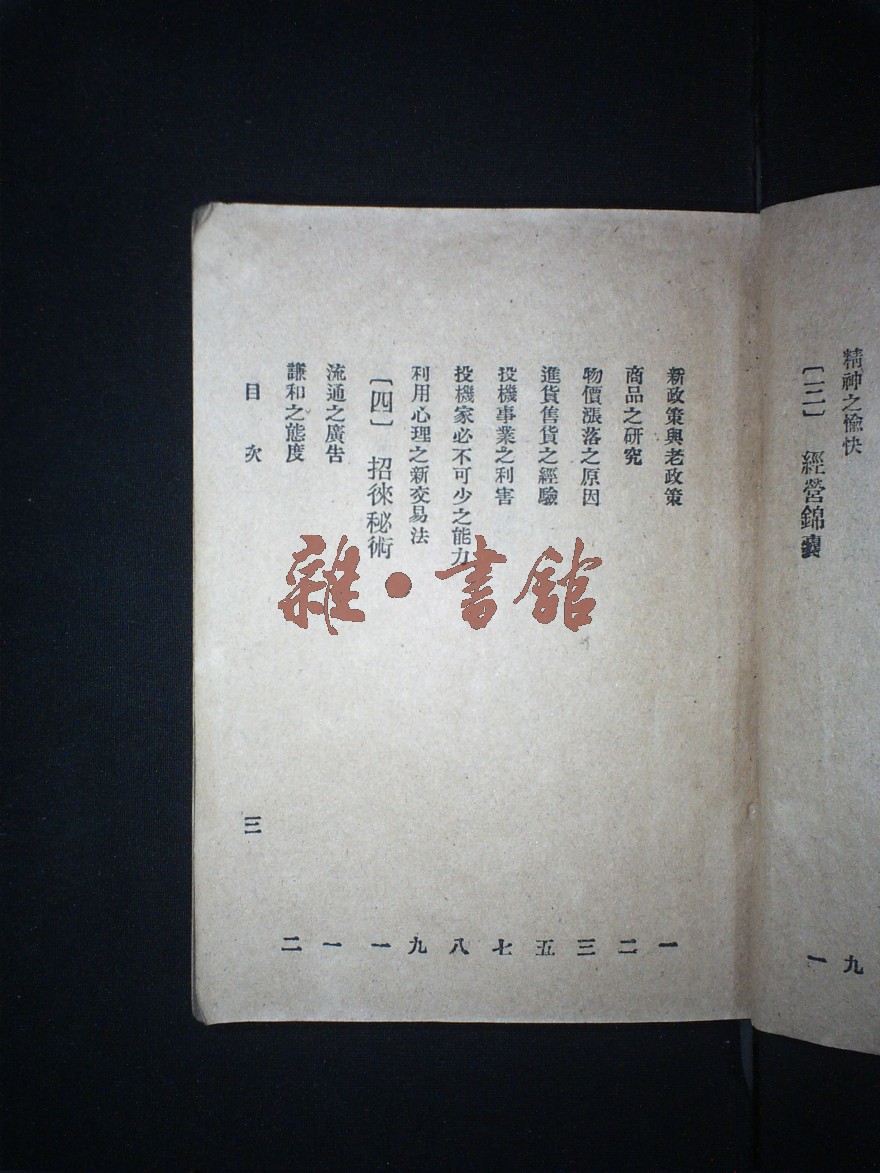 精神之愉快 九
〔三〕 經營錦囊 一
新政策與老政策 一
商品之研究 二
物價漲落之原因 三
進貨售貨之經驗 五
投機事業之利害 七
投機家必不可少之能力 八
利用心理之新交易法 九
〔四〕 招徠秘術 一
流通之廣告 一
謙和之態度 二
目次 三
雜·書館